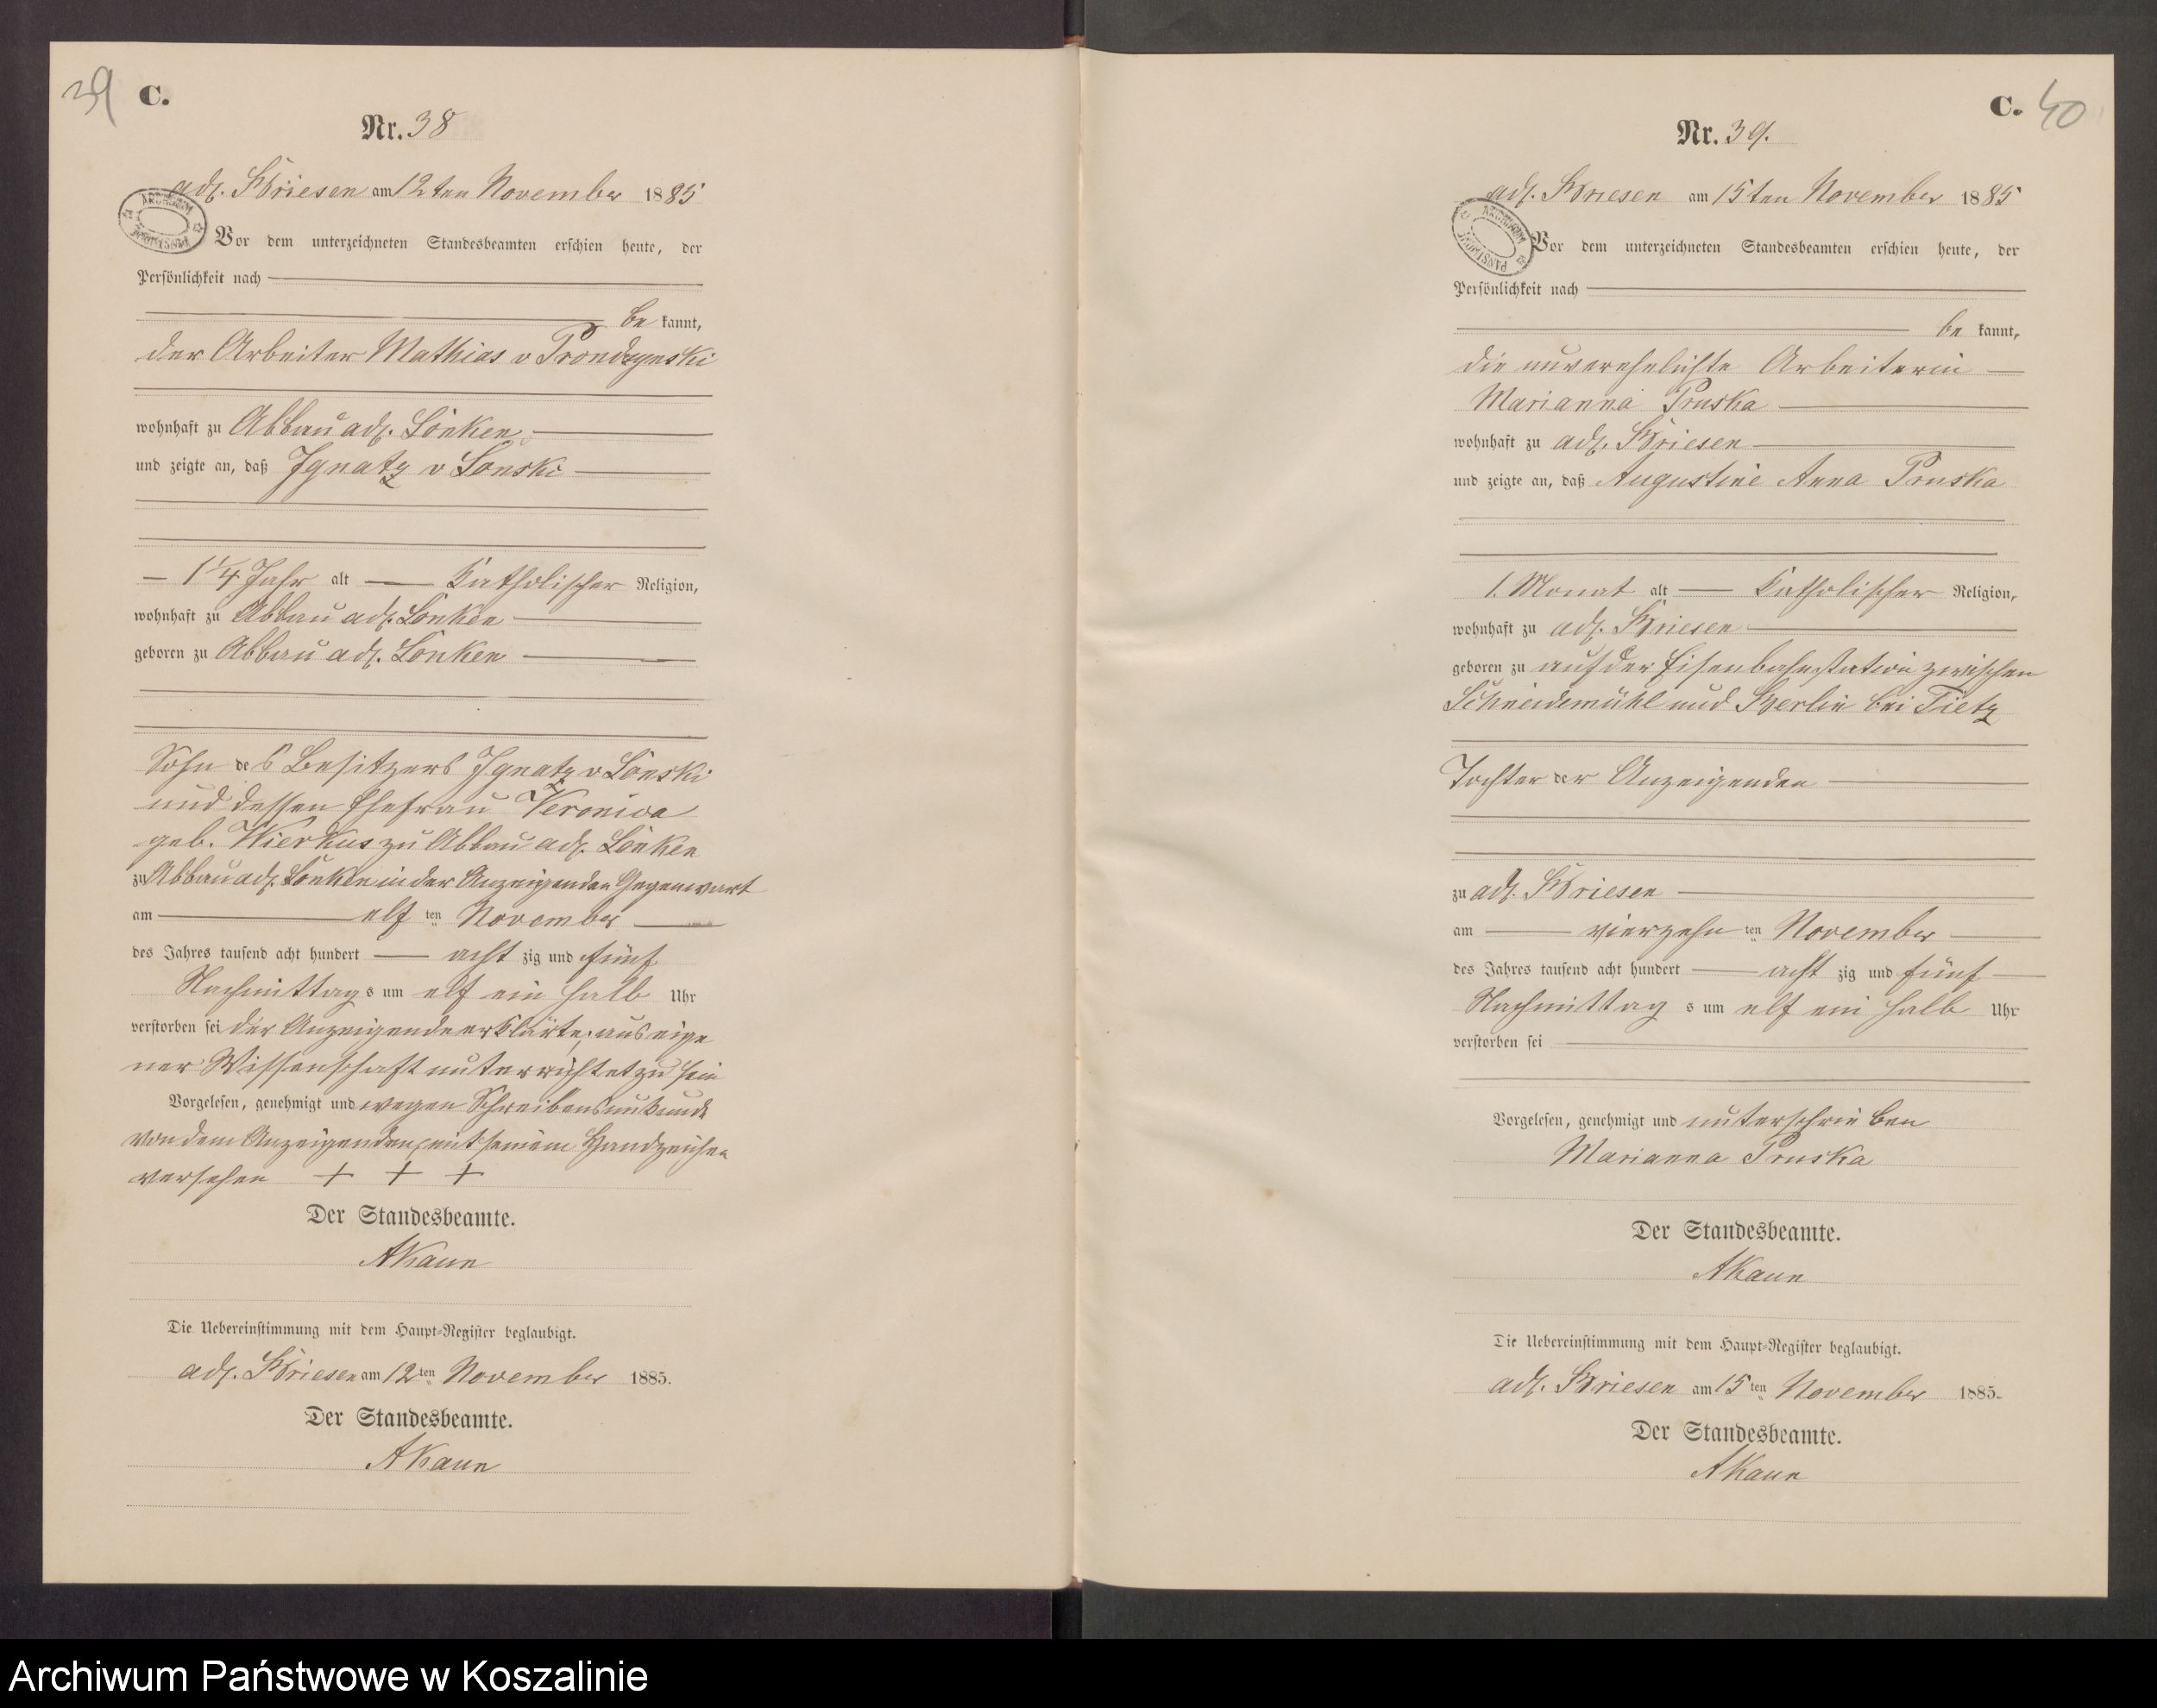 39
C.
Nr. 38
adl. Briesen am 12ten November 1885
ARCHIWUM PAŃSTWOWE
Vor dem unterzeichneten Standesbeamten erschien heute, der
Persönlichkeit nach
be kannt,
der Arbeiter Mathias v Prondzynski
wohnhaft zu Abbau adl. Lonken
und zeigte an, daß Ignatz v Lonski
1 1/4 Jahr alt Katholischer Religion,
wohnhaft zu Abbau adl. Lonken
geboren zu Abbau adl. Lonken
Sohn des Besitzers Ignatz v Lonski
und dessen Ehefrau Veronica
geb. Wierkus zu Abbau adl. Lonken
zu Abbau adl. Lonken in der Anzeigenden Gegenwart
am elf ten November
des Jahres tausend acht hundert acht zig und fünf
Nachmittag s um elf ein halb Uhr
verstorben sei der Anzeigende erklärte, aus eige
ner Wissenschaft unterrichtet zu sein
Vorgelesen, genehmigt und wegen Schreibensunkunde
von dem Anzeigenden mit seinem Handzeichen
versehen + + +
Der Standesbeamte.
AKaun
Die Uebereinstimmung mit dem Haupt-Register beglaubigt.
adl. Briesen am 12ten November 1885.
Der Standesbeamte.
AKaun
C.
40
Nr. 39.
adl. Briesen am 15ten November 1885
ARCHIWUM PAŃSTWOWE
Vor dem unterzeichneten Standesbeamten erschien heute, der
Persönlichkeit nach
be kannt,
die unverehelichte Arbeiterin
Marianna Pruska
wohnhaft zu adl. Briesen
und zeigte an, daß Augustine Anna Pruska
1. Monat alt Katholischer Religion,
wohnhaft zu adl. Briesen
geboren zu auf der Eisenbahnstation zwischen
Schneidemühl und Berlin bei Tietz
Tochter der Anzeigenden
zu adl. Briesen
am vierzehn ten November
des Jahres tausend acht hundert acht zig und fünf
Nachmittag s um elf ein halb Uhr
verstorben sei
Vorgelesen, genehmigt und unterschrieben
Marianna Pruska
Der Standesbeamte.
AKaun
Die Uebereinstimmung mit dem Haupt-Register beglaubigt.
adl. Briesen am 15ten November 1885.
Der Standesbeamte.
AKaun
Archiwum Państwowe w Koszalinie